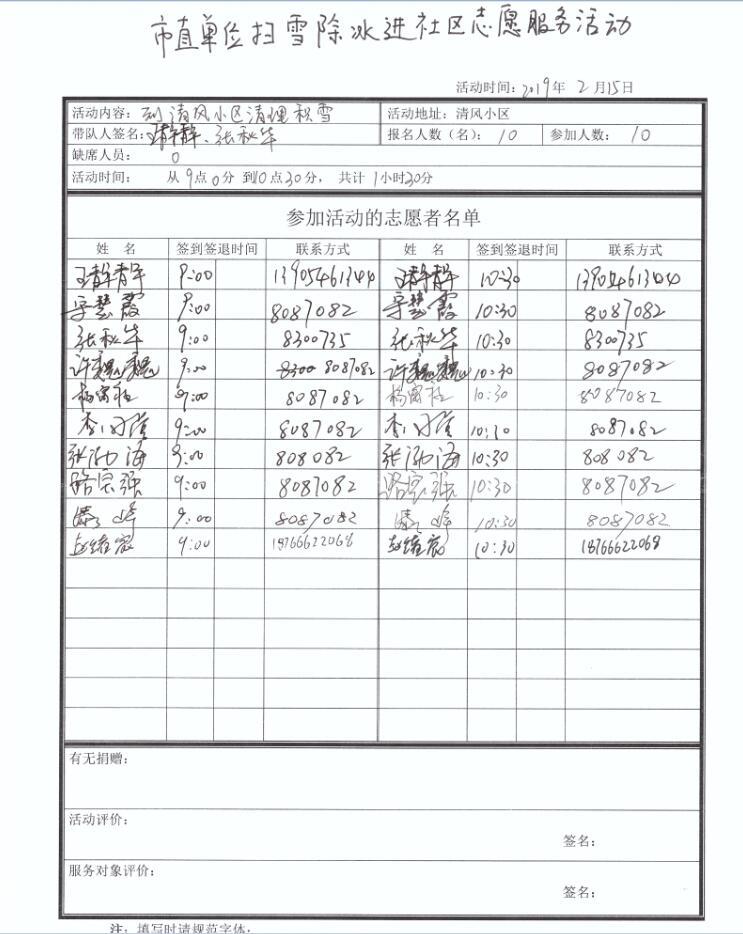 市直单位扫雪除冰进社区志愿服务活动
活动时间:2019年 2月15日
活动内容: 到清风小区清理积雪 活动地址: 清风小区
带队人签名: 王静静、张秋华 报名人数(名): 10 参加人数: 10
缺席人员: 0
活动时间: 从 9点 0分 到10点30分, 共计 1小时30分
参加活动的志愿者名单
姓 名 签到签退时间 联系方式 姓 名 签到签退时间 联系方式
王静静 9:00 13905461344 王静静 10:30 13905461344
9:00 8087082 10:30 8087082
张秋华 9:00 8300735 张秋华 10:30 8300735
许巍巍 9:00 8300 8087082 许巍巍 10:30 8087082
9:00 8087082 10:30 8087082
9:00 8087082 10:30 8087082
张渤海 9:00 808082 张渤海 10:30 808082
路宗强 9:00 8087082 路宗强 10:30 8087082
9:00 8087082 10:30 8087082
9:00 18766622068 10:30 18766622068
有无捐赠:
活动评价:
签名:
服务对象评价:
签名:
注: 填写时请规范字体,